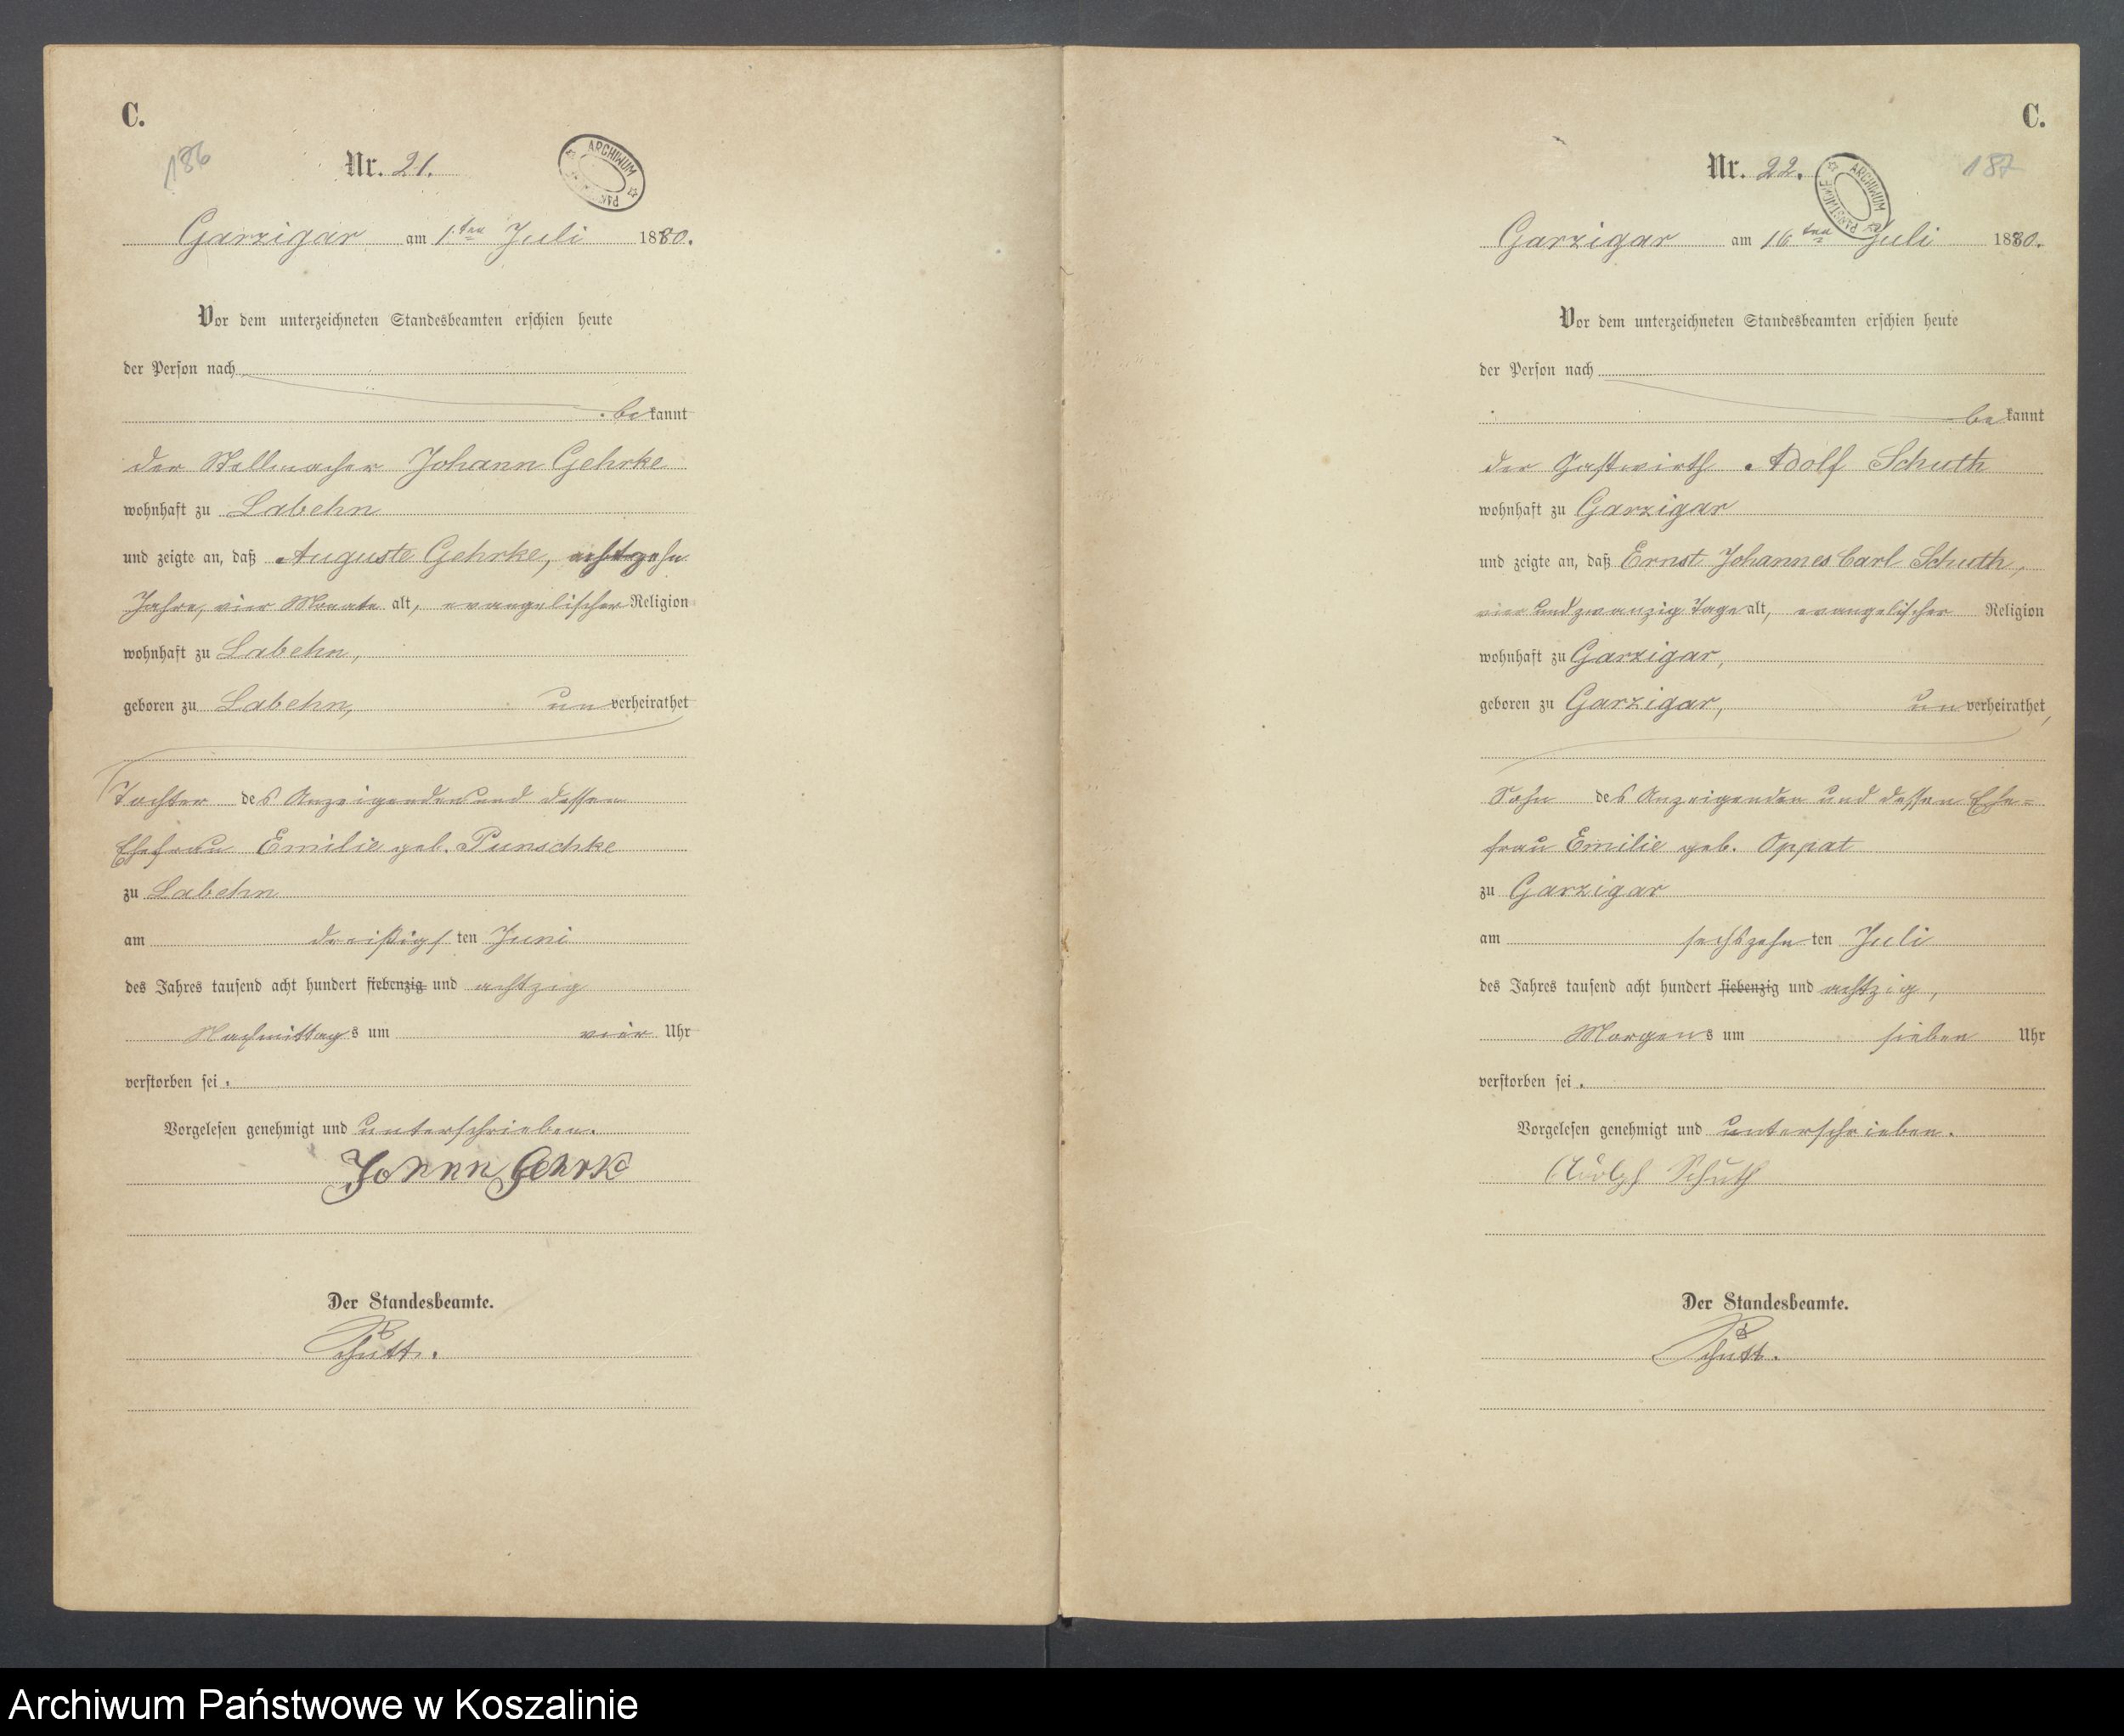 C.
186
Nr. 21.
ARCHIWUM
Garzigar am 1. ten Juli 1880.
Vor dem unterzeichneten Standesbeamten erschien heute
der Person nach
bekannt
der Stellmacher Johann Gehrke
wohnhaft zu Labehn
und zeigte an, daß Auguste Gehrke, achtzehn
Jahre, vier Monate alt, evangelischer Religion
wohnhaft zu Labehn,
geboren zu Labehn, unverheirathet
Tochter des Anzeigenden und dessen
Ehefrau Emilie geb. Punschke
zu Labehn
am dreißigsten Juni
des Jahres tausend acht hundert siebenzig und achtzig
Nachmittags um vier Uhr
verstorben sei.
Vorgelesen genehmigt und unterschrieben.
Johann Gehrk
Der Standesbeamte.
Schutt.
C.
187
Nr. 22.
ARCHIWUM PAŃSTWOWE
Garzigar am 16 ten Juli 1880.
Vor dem unterzeichneten Standesbeamten erschien heute
der Person nach
bekannt
der Gastwirth Adolf Schuth
wohnhaft zu Garzigar
und zeigte an, daß Ernst Johannes Carl Schuth,
vier und zwanzig Tage alt, evangelischer Religion
wohnhaft zu Garzigar,
geboren zu Garzigar, unverheirathet,
Sohn des Anzeigenden und dessen Ehe=
frau Emilie geb. Oppat
zu Garzigar
am sechszehnten Juli
des Jahres tausend acht hundert siebenzig und achtzig,
Morgens um sieben Uhr
verstorben sei.
Vorgelesen genehmigt und unterschrieben.
Adolph Schuth
Der Standesbeamte.
Schutt.
Archiwum Państwowe w Koszalinie